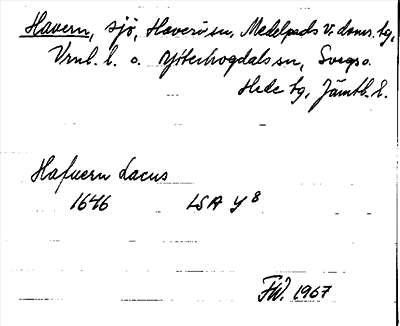 Havern, sjö, Haverö sn, Medelpads V. doms. tg,
Vrnl. l. o. Ytterhogdals sn, Svegs o.
Hede tg, Jämtl. l.
Hafuern Lacus
1646 LSA Y 8
FW. 1967